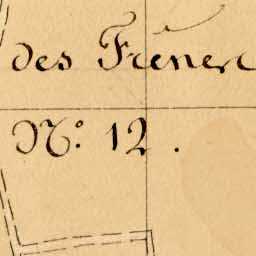 des Frener
N.º 12.